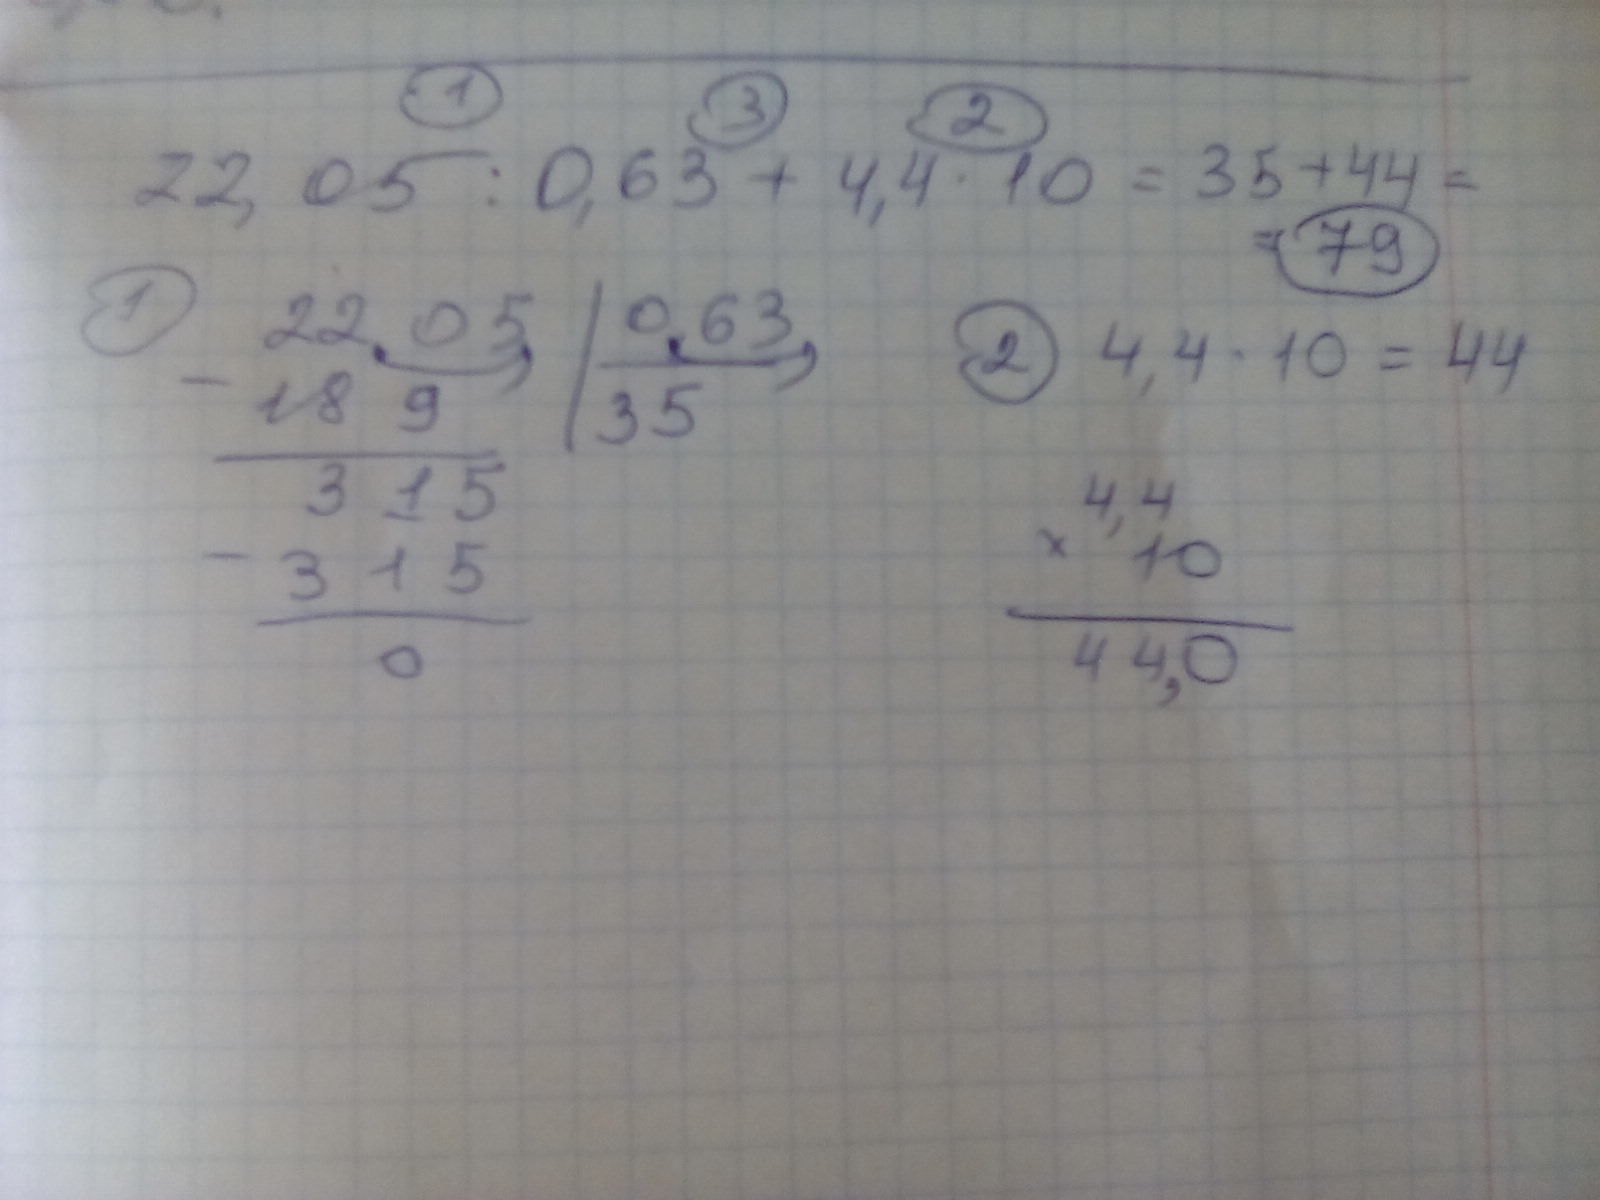 1 3 2
22,05 : 0,63 + 4,4 · 10 = 35 + 44 =
= 79
1 22,05 | 0,63
- 189 35
315
- 315
0
2 4,4 · 10 = 44
4,4
x 10
44,0